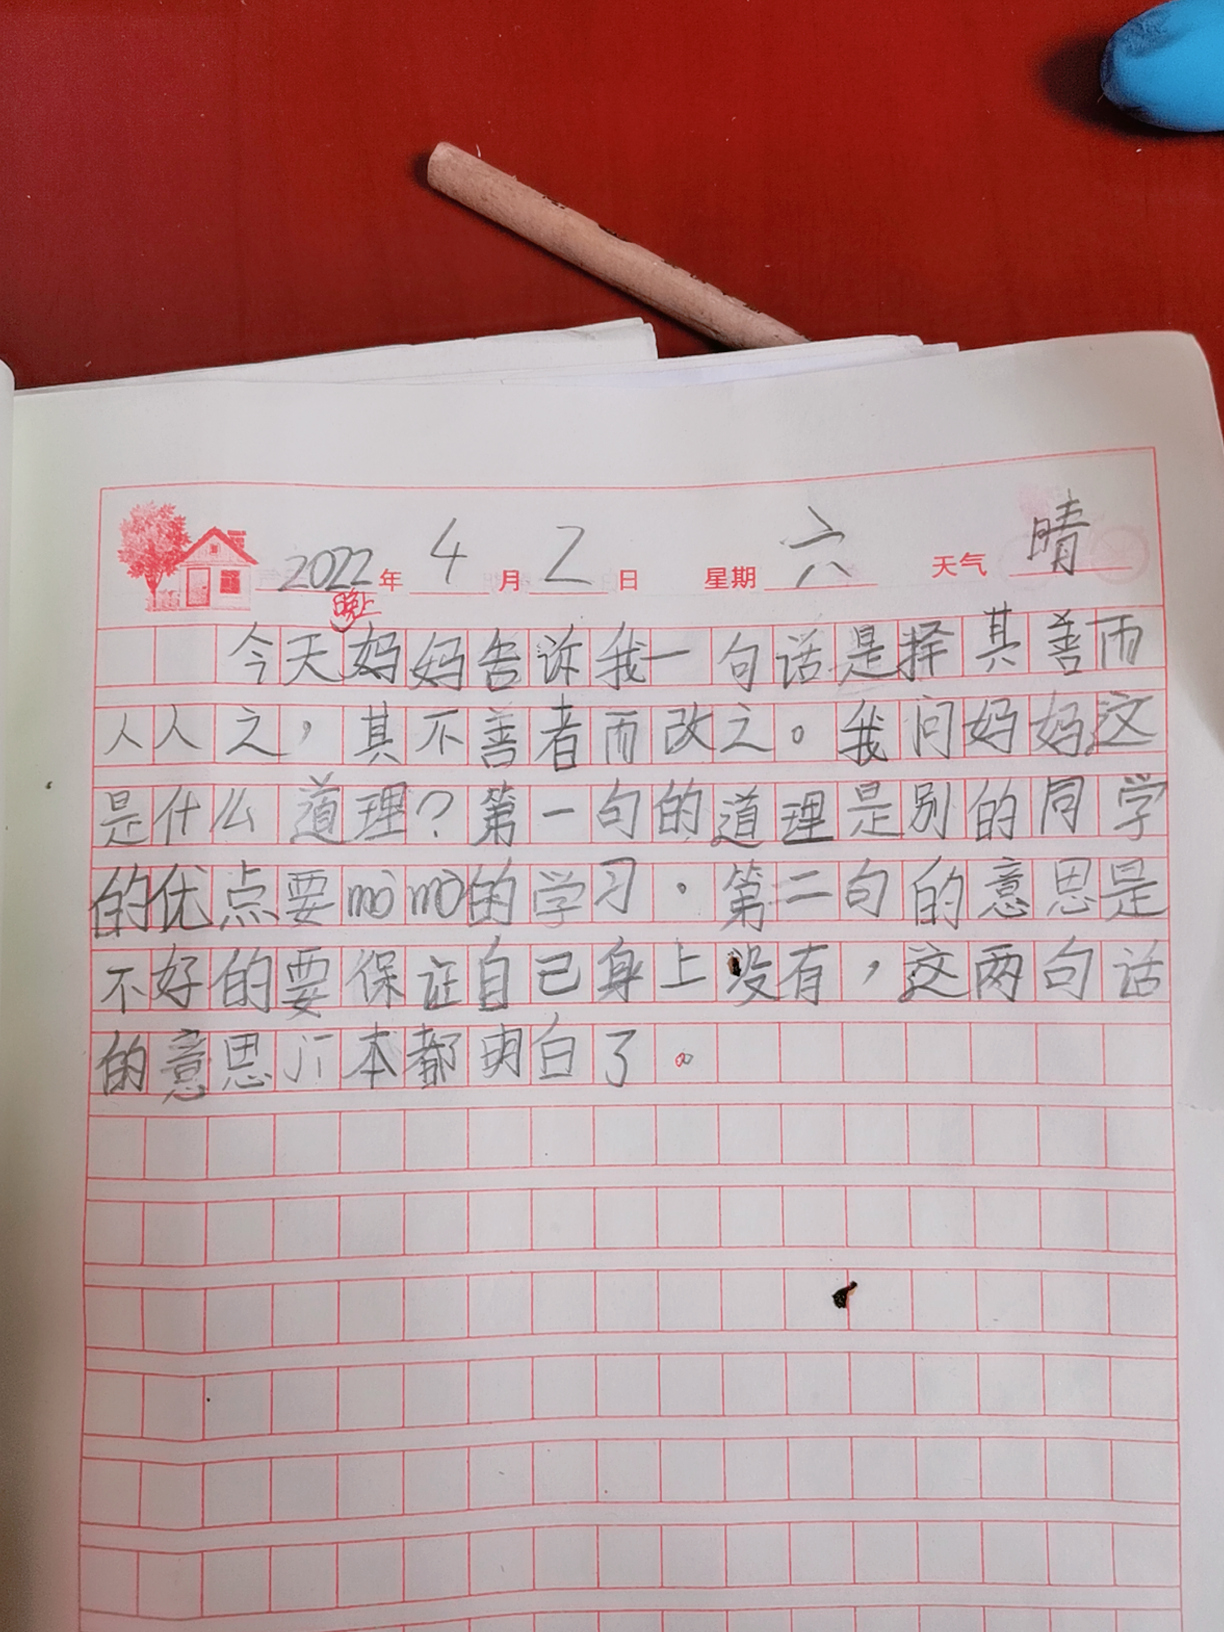 2022年 4月 2日 星期 六 天气 晴
晚上
今天妈妈告诉我一句话是择其善而
人人之，其不善者而改之。我问妈妈这
是什么道理？第一句的道理是别的同学
的优点要mòmò的学习。第二句的意思是
不好的要保证自己身上没有，这两句话
的意思 本都明白了。